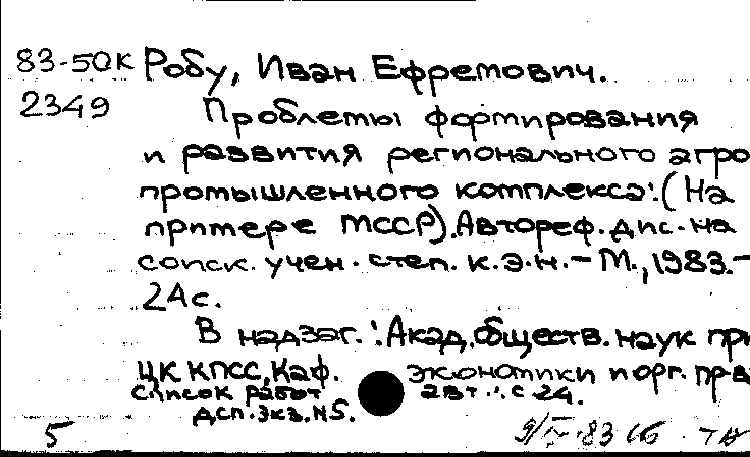 83-50к Робу, Иван Ефремович.
2349 Проблемы формирования
и развития регионального агро
промышленного комплекса: (На
примере МССР). Автореф. дис. на
соиск. учен. степ. к.э.н. - М., 1983. -
24 с.
В надзаг.: Акад. обществ. наук при
ЦК КПСС, Каф. экономики и орг. пр-в
Список работ авт.: с. 24.
ДСП. Экз. №5.
5